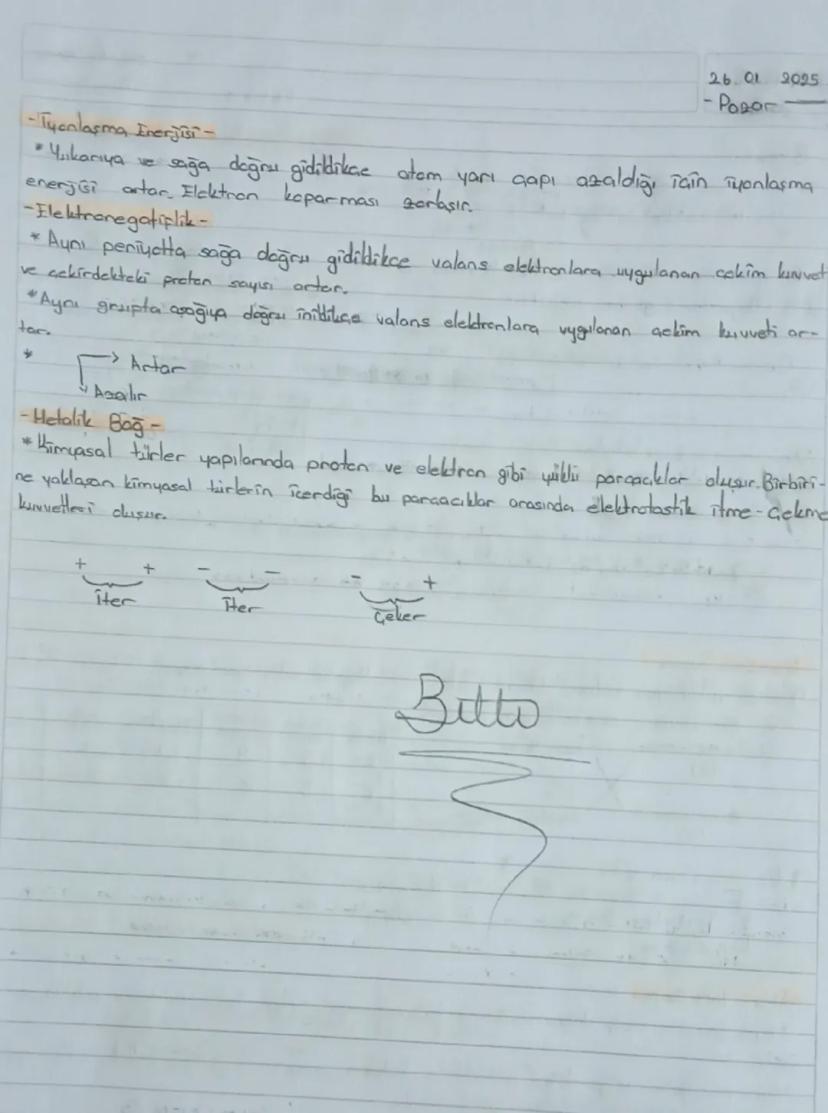 26.01 2025
- Pazar
- İyonlaşma Enerjisi -
* Yukarıya ve sağa doğru gidildikçe atom yarı çapı azaldığı için iyonlaşma
enerjisi artar. Elektron koparması zorlaşır.
- Elektronegatiflik -
* Aynı periyotta sağa doğru gidildikçe valans elektronlara uygulanan çekim kuvvet
ve çekirdekteki proton sayısı artar.
* Aynı grupta aşağıya doğru inildikçe valans elektronlara uygulanan çekim kuvveti ar-
tar.
* → Artar
↓ Azalır
- Metalik Bağ -
* Kimyasal türler yapılarında proton ve elektron gibi yüklü parçacıklar oluşur. Birbiri-
ne yaklaşan kimyasal türlerin içerdiği bu parçacıklar arasında elektrotastik itme - çekme
kuvvetleri oluşur.
+ + - - - +
iter iter Çeker
Bitti